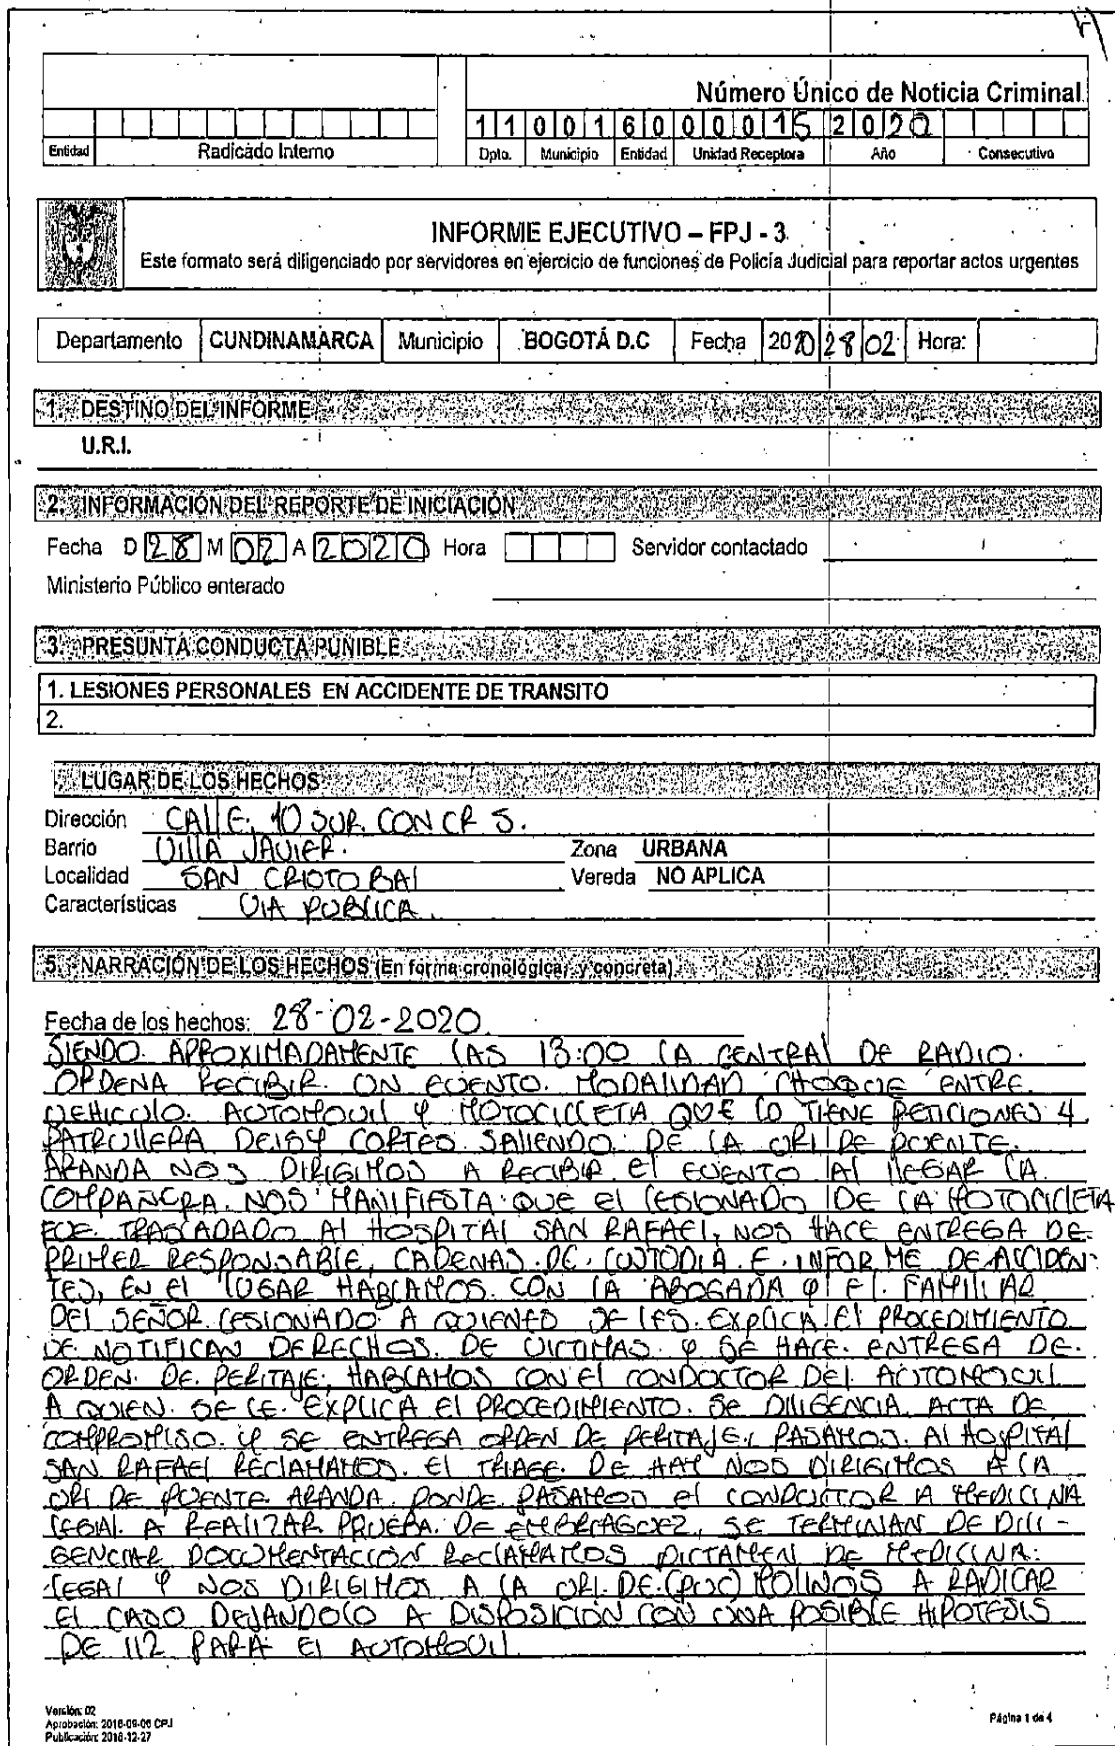 Número Único de Noticia Criminal
1 1 0 0 1 6 0 0 0 0 1 5 2 0 2 0
Entidad Radicado Interno Dpto. Municipio Entidad Unidad Receptora Año Consecutivo
INFORME EJECUTIVO – FPJ - 3
Este formato será diligenciado por servidores en ejercicio de funciones de Policía Judicial para reportar actos urgentes
Departamento CUNDINAMARCA Municipio BOGOTÁ D.C Fecha 2020 28 02 Hora:
1. DESTINO DEL INFORME
U.R.I.
2. INFORMACIÓN DEL REPORTE DE INICIACIÓN
Fecha D 28 M 02 A 2020 Hora Servidor contactado
Ministerio Público enterado
3. PRESUNTA CONDUCTA PUNIBLE
1. LESIONES PERSONALES EN ACCIDENTE DE TRANSITO
2.
LUGAR DE LOS HECHOS
Dirección CALLE 10 SUR CON CR 5.
Barrio VILLA JAVIER. Zona URBANA
Localidad SAN CRISTOBAL Vereda NO APLICA
Características VIA PUBLICA.
5. NARRACIÓN DE LOS HECHOS (En forma cronológica, y concreta)
Fecha de los hechos: 28-02-2020
SIENDO APROXIMADAMENTE LAS 13:00 LA CENTRAL DE RADIO
ORDENA RECIBIR UN EVENTO. MODALIDAD CHOQUE ENTRE
VEHICULO AUTOMOVIL Y MOTOCICLETA QUE LO TIENE PETICIONES 4
PATRULLERA DEISY CORTES SALIENDO DE LA URI DE PUENTE
ARANDA NOS DIRIGIMOS A RECIBIR EL EVENTO AL LLEGAR LA
COMPAÑERA NOS MANIFIESTA QUE EL LESIONADO DE LA MOTOCICLETA
FUE TRASLADADO AL HOSPITAL SAN RAFAEL, NOS HACE ENTREGA DE
PRIMER RESPONSABLE, CADENAS DE CUSTODIA E INFORME DE ACCIDEN-
TES, EN EL LUGAR HABLAMOS CON LA ABOGADA Y EL FAMILIAR
DEL SEÑOR LESIONADO A QUIENES SE LES EXPLICA EL PROCEDIMIENTO
SE NOTIFICAN DERECHOS DE VICTIMAS Y SE HACE ENTREGA DE
ORDEN DE PERITAJE, HABLAMOS CON EL CONDUCTOR DEL AUTOMOVIL
A QUIEN SE LE EXPLICA EL PROCEDIMIENTO. SE DILIGENCIA ACTA DE
COMPROMISO Y SE ENTREGA ORDEN DE PERITAJE, PASAMOS AL HOSPITAL
SAN RAFAEL RECLAMAMOS EL TRIAGE DE HAY NOS DIRIGIMOS A LA
URI DE PUENTE ARANDA DONDE PASAMOS EL CONDUCTOR A MEDICINA
LEGAL A REALIZAR PRUEBA DE EMBRIAGUEZ, SE TERMINAN DE DILI-
GENCIAR DOCUMENTACION RECLAMAMOS DICTAMEN DE MEDICINA
LEGAL Y NOS DIRIGIMOS A LA URI DE MOLINOS A RADICAR
EL CASO DEJANDOLO A DISPOSICION CON UNA POSIBLE HIPOTESIS
DE 112 PARA EL AUTOMOVIL
Versión: 02
Aprobación: 2016-09-06 CPJ
Publicación: 2016-12-27
Página 1 de 4